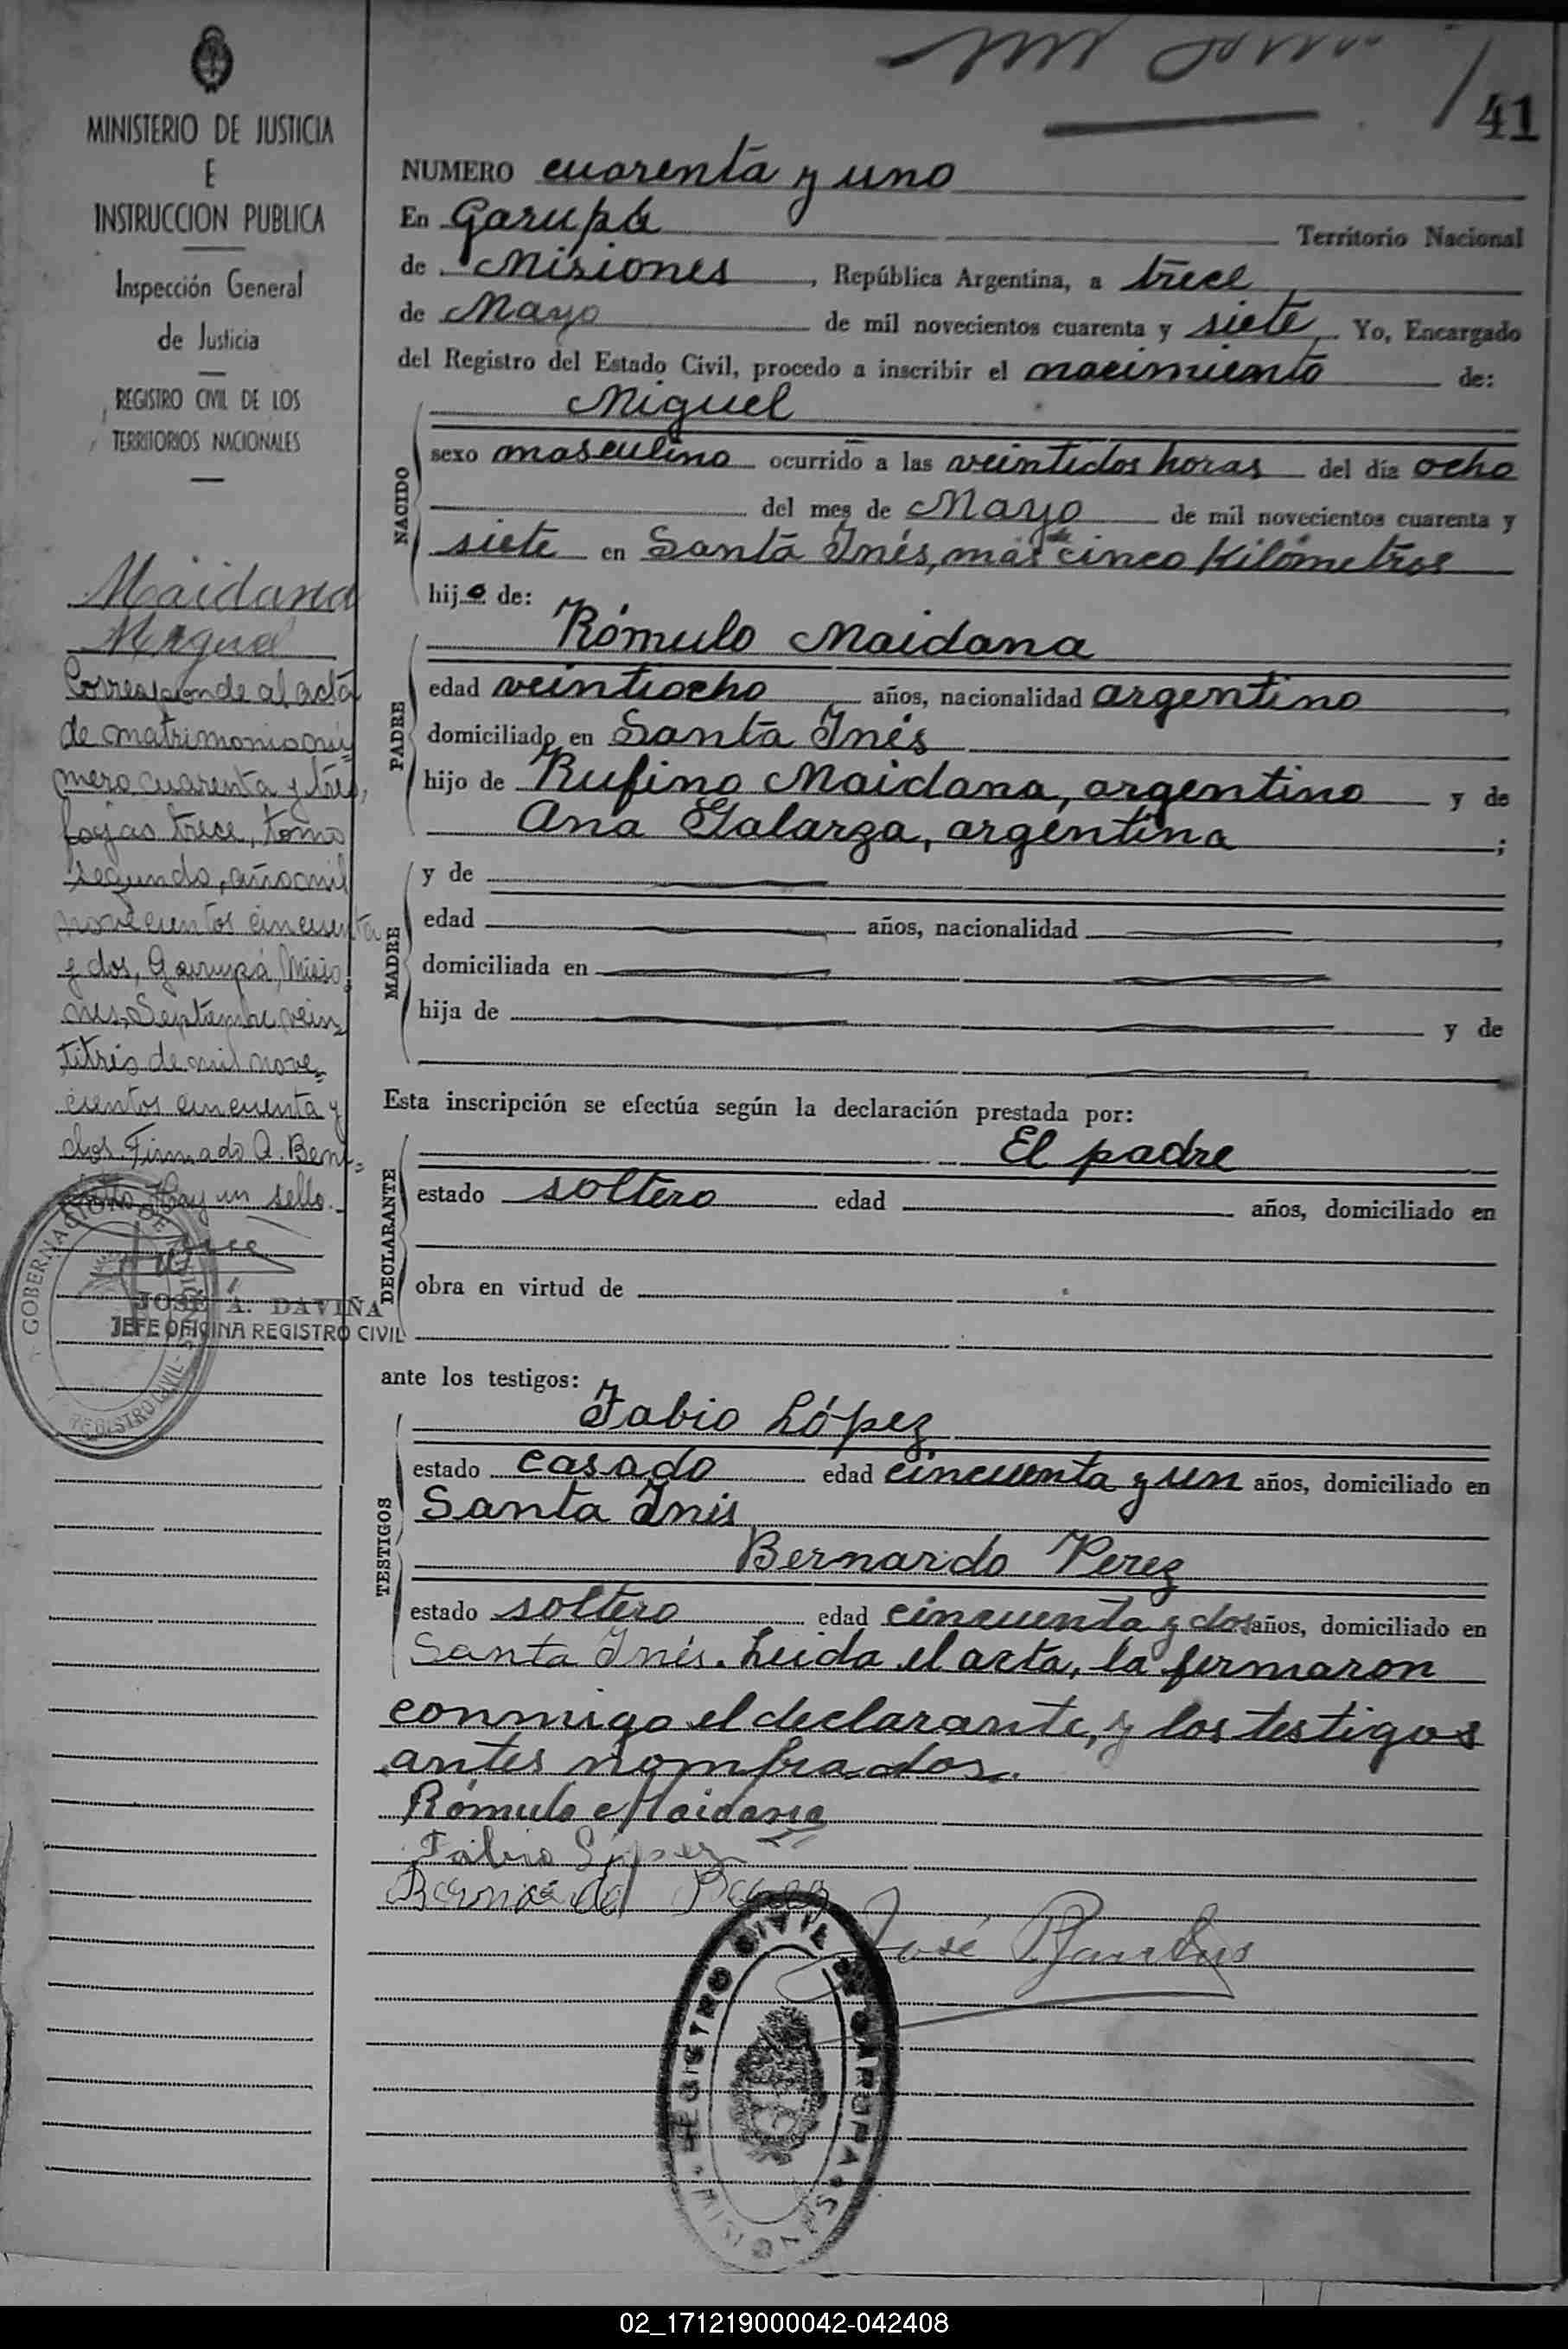 41
MINISTERIO DE JUSTICIA
E
INSTRUCCION PUBLICA
Inspección General
de Justicia
REGISTRO CIVIL DE LOS
TERRITORIOS NACIONALES
Maidana
Miguel
Corresponde al acta
de matrimonio nú
mero cuarenta y tres,
fojas trece, tomo
segundo, año mil
novecientos cincuenta
y dos, Garupá, Misio
nes, Septiembre vein=
titrés de mil nove=
cientos cincuenta y
dos. Firmado A. Beni=
Hay un sello.
GOBERNACION DE MISIONES
REGISTRO CIVIL
JOSÉ A. DAVIÑA
JEFE OFICINA REGISTRO CIVIL
NUMERO cuarenta y uno
En Garupá Territorio Nacional
de Misiones, República Argentina, a trece
de Mayo de mil novecientos cuarenta y siete. Yo, Encargado
del Registro del Estado Civil, procedo a inscribir el nacimiento de:
NACIDO
Miguel
sexo masculino ocurrido a las veintidos horas del día ocho
del mes de Mayo de mil novecientos cuarenta y
siete en Santa Inés, más de cinco Kilómetros
hijo de:
PADRE
Rómulo Maidana
edad veintiocho años, nacionalidad argentino,
domiciliado en Santa Inés
hijo de Rufino Maidana, argentino y de
Ana Galarza, argentina ;
MADRE
y de
edad años, nacionalidad ,
domiciliada en
hija de y de
Esta inscripción se efectúa según la declaración prestada por:
DECLARANTE
El padre
estado soltero edad años, domiciliado en
obra en virtud de
ante los testigos:
TESTIGOS
Fabio López
estado casado edad cincuenta y un años, domiciliado en
Santa Inés
Bernardo Perez
estado soltero edad cincuenta y dos años, domiciliado en
Santa Inés. Leida el acta, la firmaron
conmigo el declarante, y los testigos
antes nombrados.
Rómulo Maidana
Fabio López
Bernardo Perez
José
REGISTRO CIVIL DE GARUPA
MISIONES
02_171219000042-042408